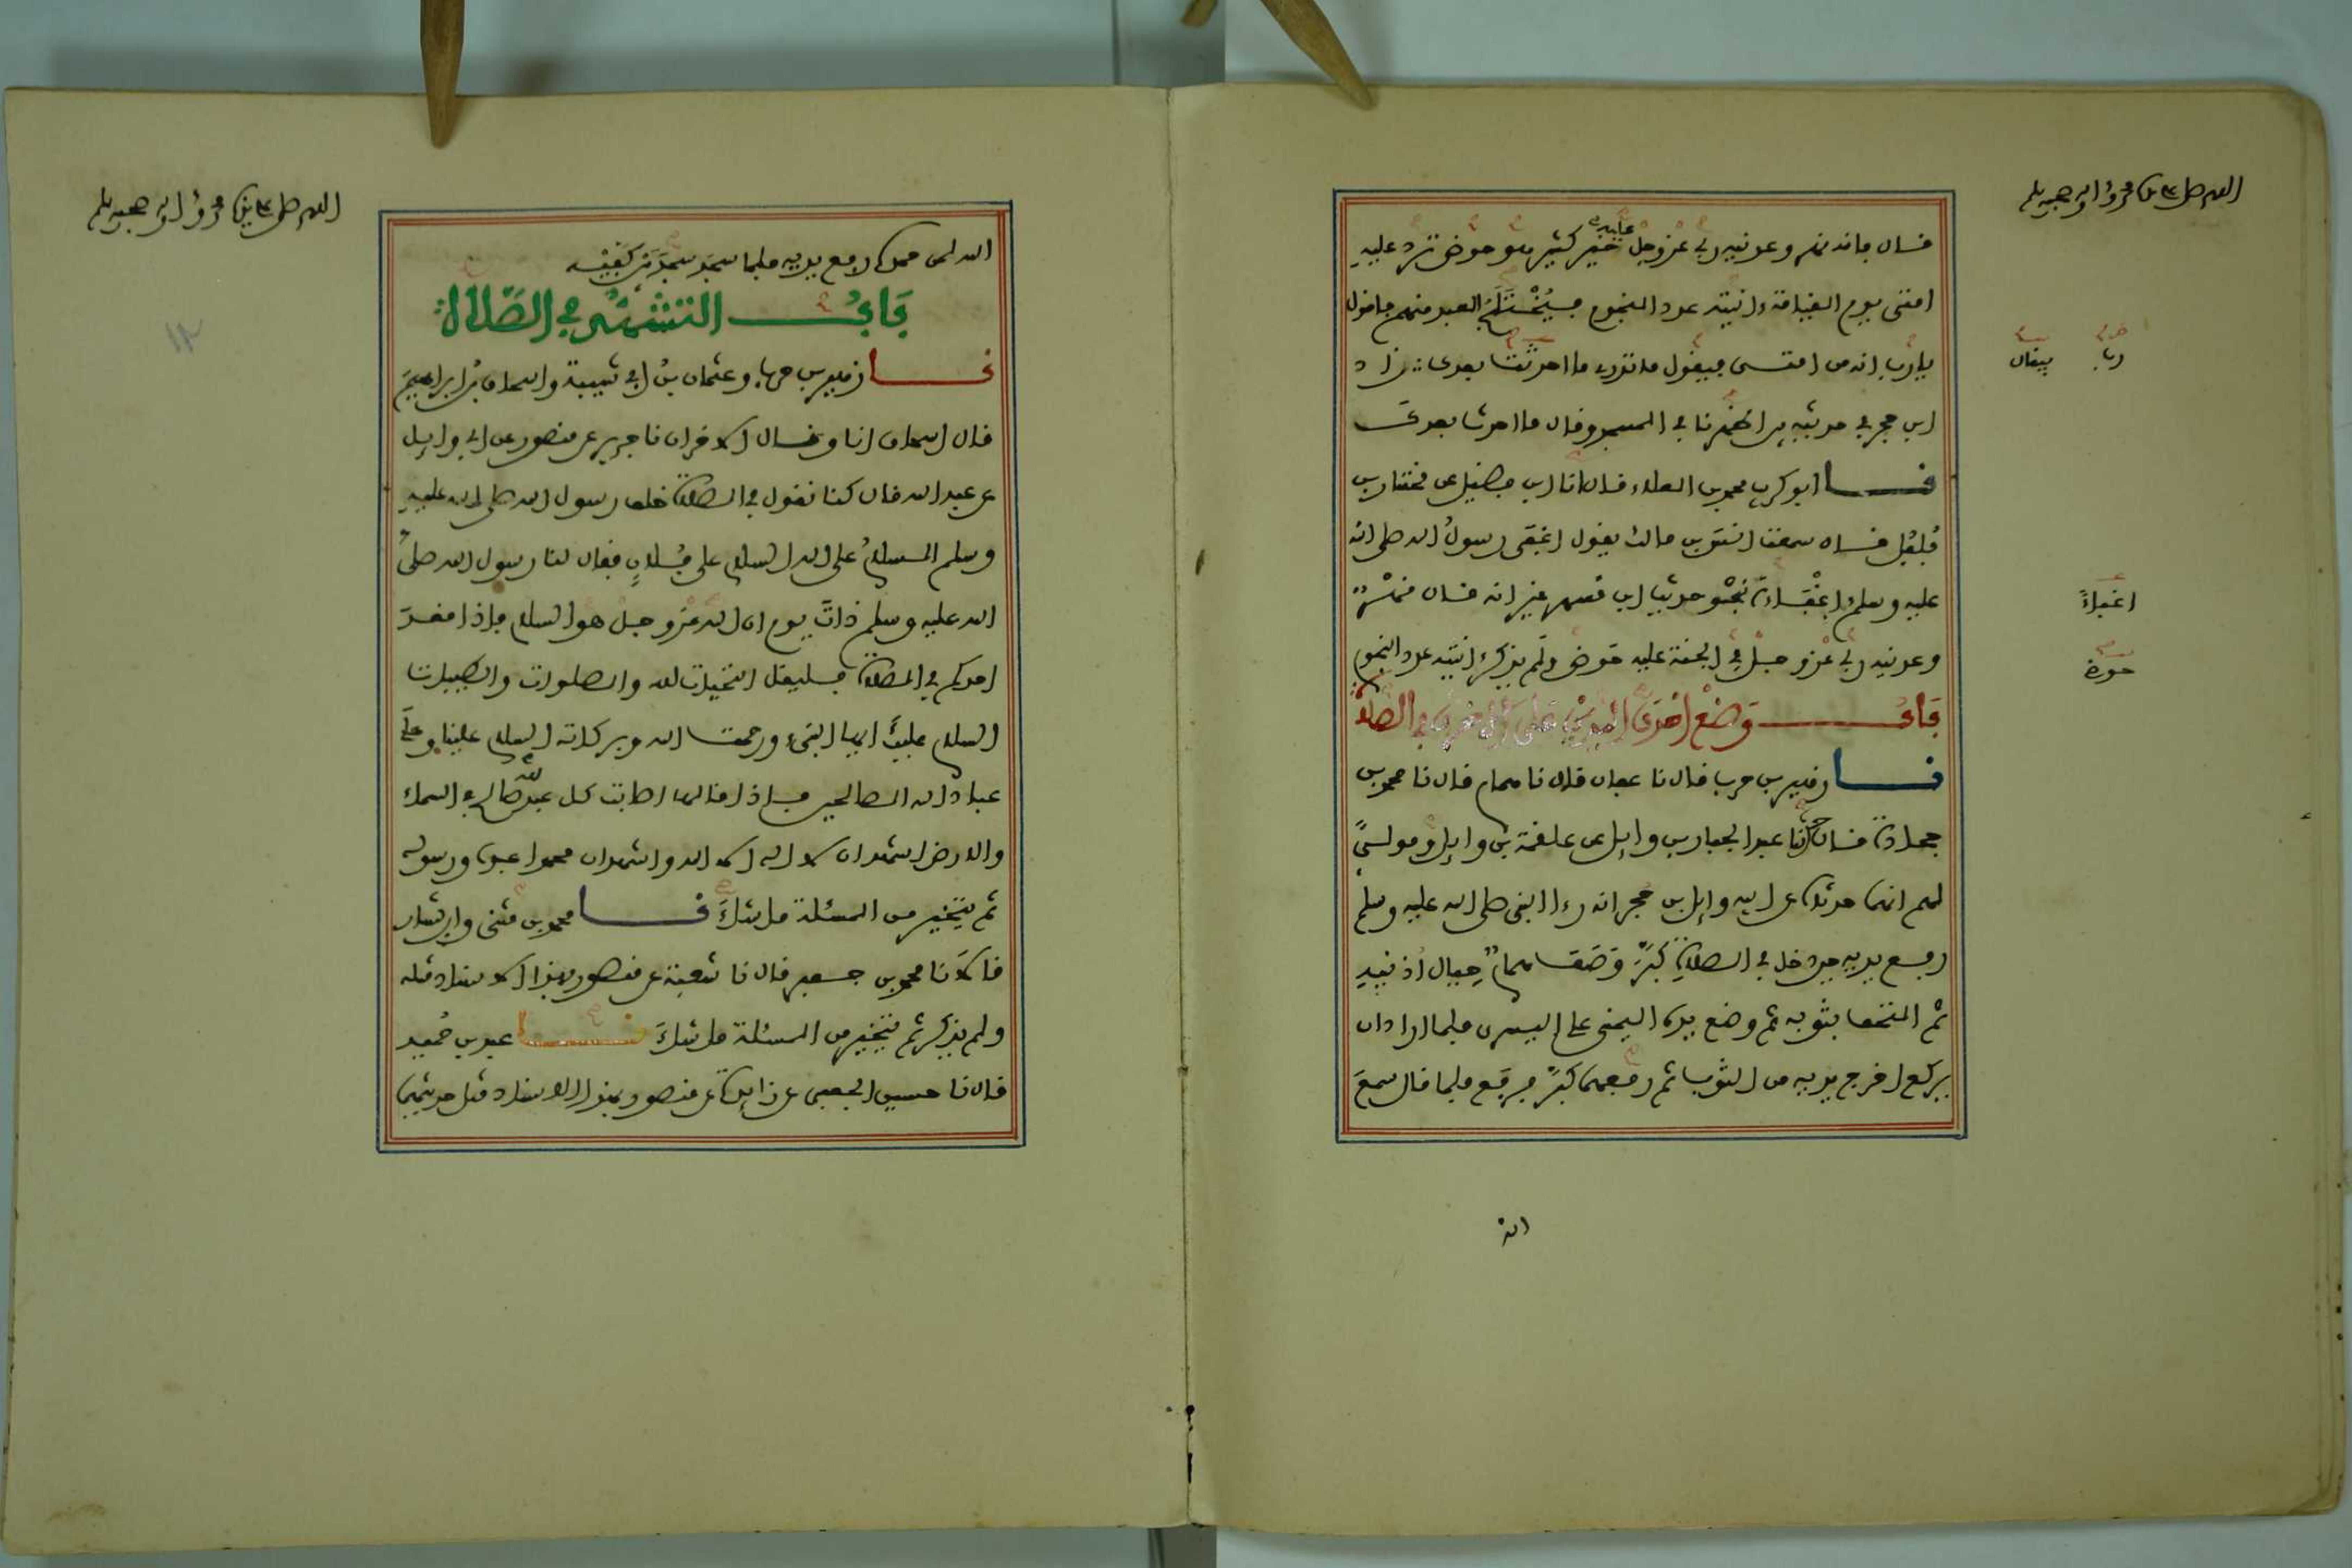 اللهم صل على سيدنا محمد وءاله وصحبه وسلم
قال فانه نهر وعدنيه ربي عز وجل عليه خير كثير هو حوض ترد عليه
امتي يوم القيامة ءانيته عدد النجوم فيختلج العبد منهم فاقول
يارب انه من امتي فيقول ما تدري ما احدثت بعدك زاد
ابن حجر في حديثه بين اظهرنا في المسجد وقال ما احدث بعدك
نا ابو كريب محمد بن العلاء قال انا ابن فضيل عن مختار بن
فلفل قال سمعت انس بن مالك يقول اغفى رسول الله صلى الله
عليه وسلم اغفاءة بنحو حديث ابن مسهر غير انه قال نهر
وعدنيه ربي عز وجل في الجنة عليه حوض ولم يذكر ءانيته عدد النجوم
باب وضع احدى اليدين على الاخرى في الصلاة
نا زهير بن حرب قال نا عفان قال نا همام قال نا محمد بن
جحادة قال حدثنا عبد الجبار بن وايل عن علقمة بن وايل ومولى
لهم انهما حدثاه عن ابيه وايل بن حجر انه رءا النبي صلى الله عليه وسلم
رفع يديه حين دخل في الصلاة كبر وصف همام حيال اذنيه
ثم التحف بثوبه ثم وضع يده اليمنى على اليسرى فلما اراد ان
يركع اخرج يديه من الثوب ثم رفعهما كبر فركع فلما قال سمع
ربا
فيقال
اغفاءً
حوزة
الله
اللهم صل على سيدنا محمد وءاله وصحبه وسلم
الله لمن حمده رفع يديه فلما سجد سجد بين كفيه
باب التشهد في الصلاة
نا زهير بن حرب وعثمان بن ابي شيبة واسحاق بن ابراهيم
قال اسحاق انا وقال الاخران نا جرير عن منصور عن ابي وايل
عن عبد الله قال كنا نقول في الصلاة خلف رسول الله صلى الله عليه
وسلم السلام على الله السلام على فلان فقال لنا رسول الله صلى
الله عليه وسلم ذات يوم ان الله عز وجل هو السلام فاذا قعد
احدكم في الصلاة فليقل التحيات لله والصلوات والطيبات
السلام عليك ايها النبيء ورحمت الله وبركاته السلام علينا وعلى
عباد الله الصالحين فاذا قالها اصابت كل عبد لله صالح في السماء
والارض اشهد ان لا اله الا الله واشهد ان محمدا عبده ورسوله
ثم يتخير من المسئلة ما شاء نا محمد بن مثنى وابن بشار
قالا نا محمد بن جعفر قال نا شعبة عن منصور بهذا الاسناد مثله
ولم يذكر ثم يتخير من المسئلة ما شاء نا عبد بن حميد
قال نا حسين الجعفي عن زايدة عن منصور بهذا الاسناد مثل حديثهما
١٢